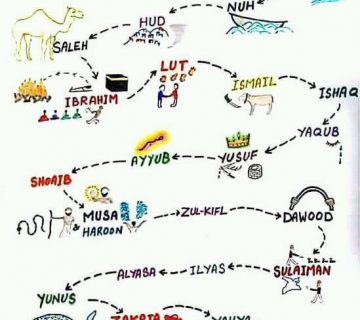 NUH
HUD
SALEH
IBRAHIM
LUT
ISMAIL
ISHAQ
YAQUB
YUSUF
AYYUB
SHOAIB
MUSA
& HAROON
ZUL-KIFL
DAWOOD
SULAIMAN
ILYAS
ALYASA
YUNUS
ZAKRIA
YAHYA